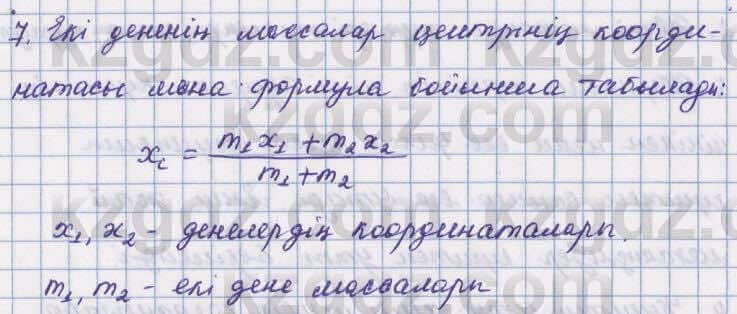 7. Екі дененің массалар центрінің коорди-
натасы мына формула бойынша табылады:
x_c = (m₁x₁ + m₂x₂) / (m₁ + m₂)
x₁, x₂ - денелердің координаталары.
m₁, m₂ - екі дене массалары
kzgdz.com